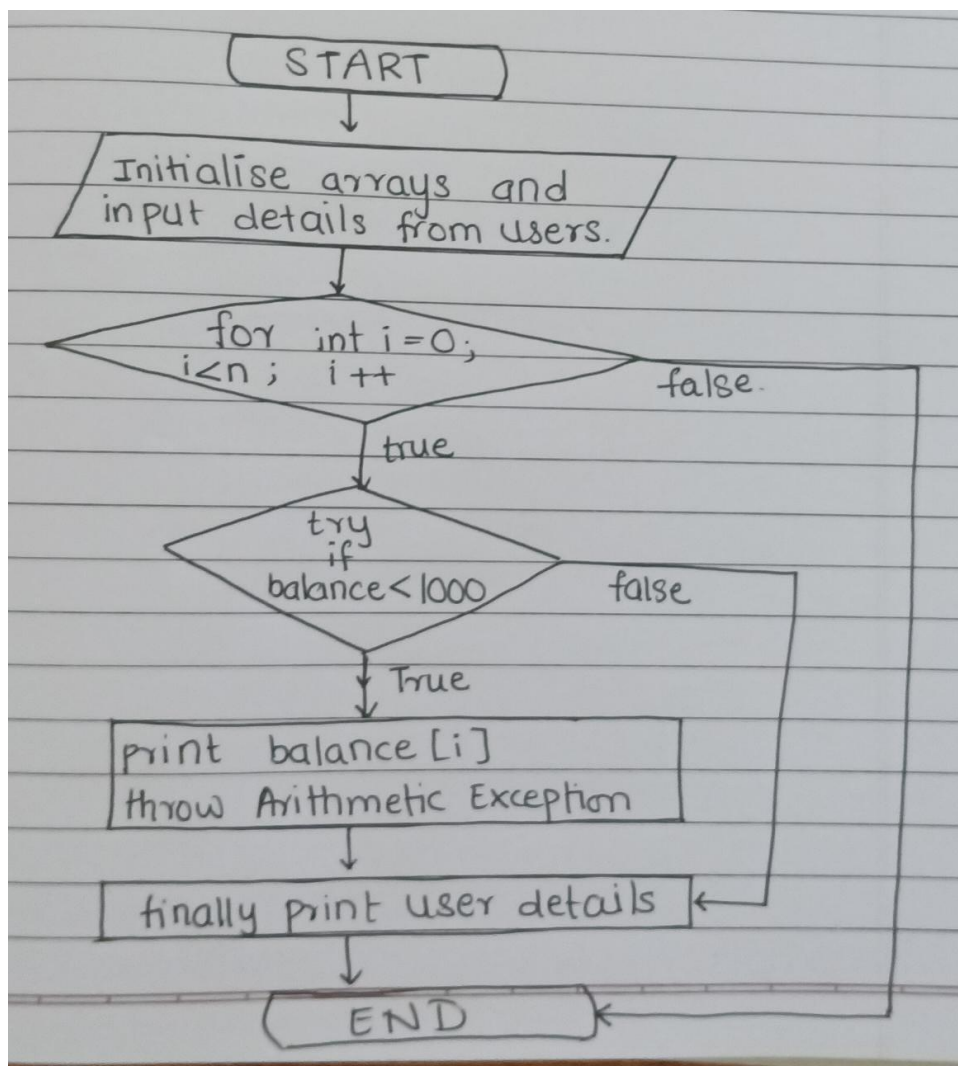 START
Initialise arrays and
input details from users.
for int i=0;
i<n; i++
false.
true
try
if
balance<1000
false
True
print balance[i]
throw Arithmetic Exception
finally print user details
END